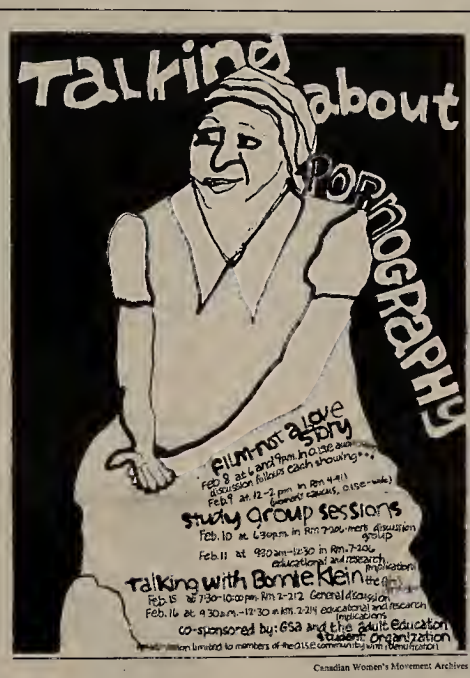 Talking
about
PORNOGRAPHY
FILM-not a love
story
Feb 8 at 6 and 9 p.m. in O.I.S.E. aud
discussion follows each showing...
Feb. 9 at 12-2 pm in Rm 4-411
(women's caucus, O.I.S.E.-wide)
study group sessions
Feb. 10 at 6:30 p.m. in RM 7-206-men's discussion
group
Feb. 11 at 9:30 am-12:30 in Rm. 7-206
educational and research
implications
Talking with Bonnie Klein the
Feb. 15 at 7:30-10:00 pm Rm 2-212 General discussion
Feb. 16 at 9:30 a.m.-12:30 in Rm. 2-214 educational and research
implications
co-sponsored by: GSA and the adult education
student organization
limited to members of the O.I.S.E. community with identification
Canadian Women's Movement Archives